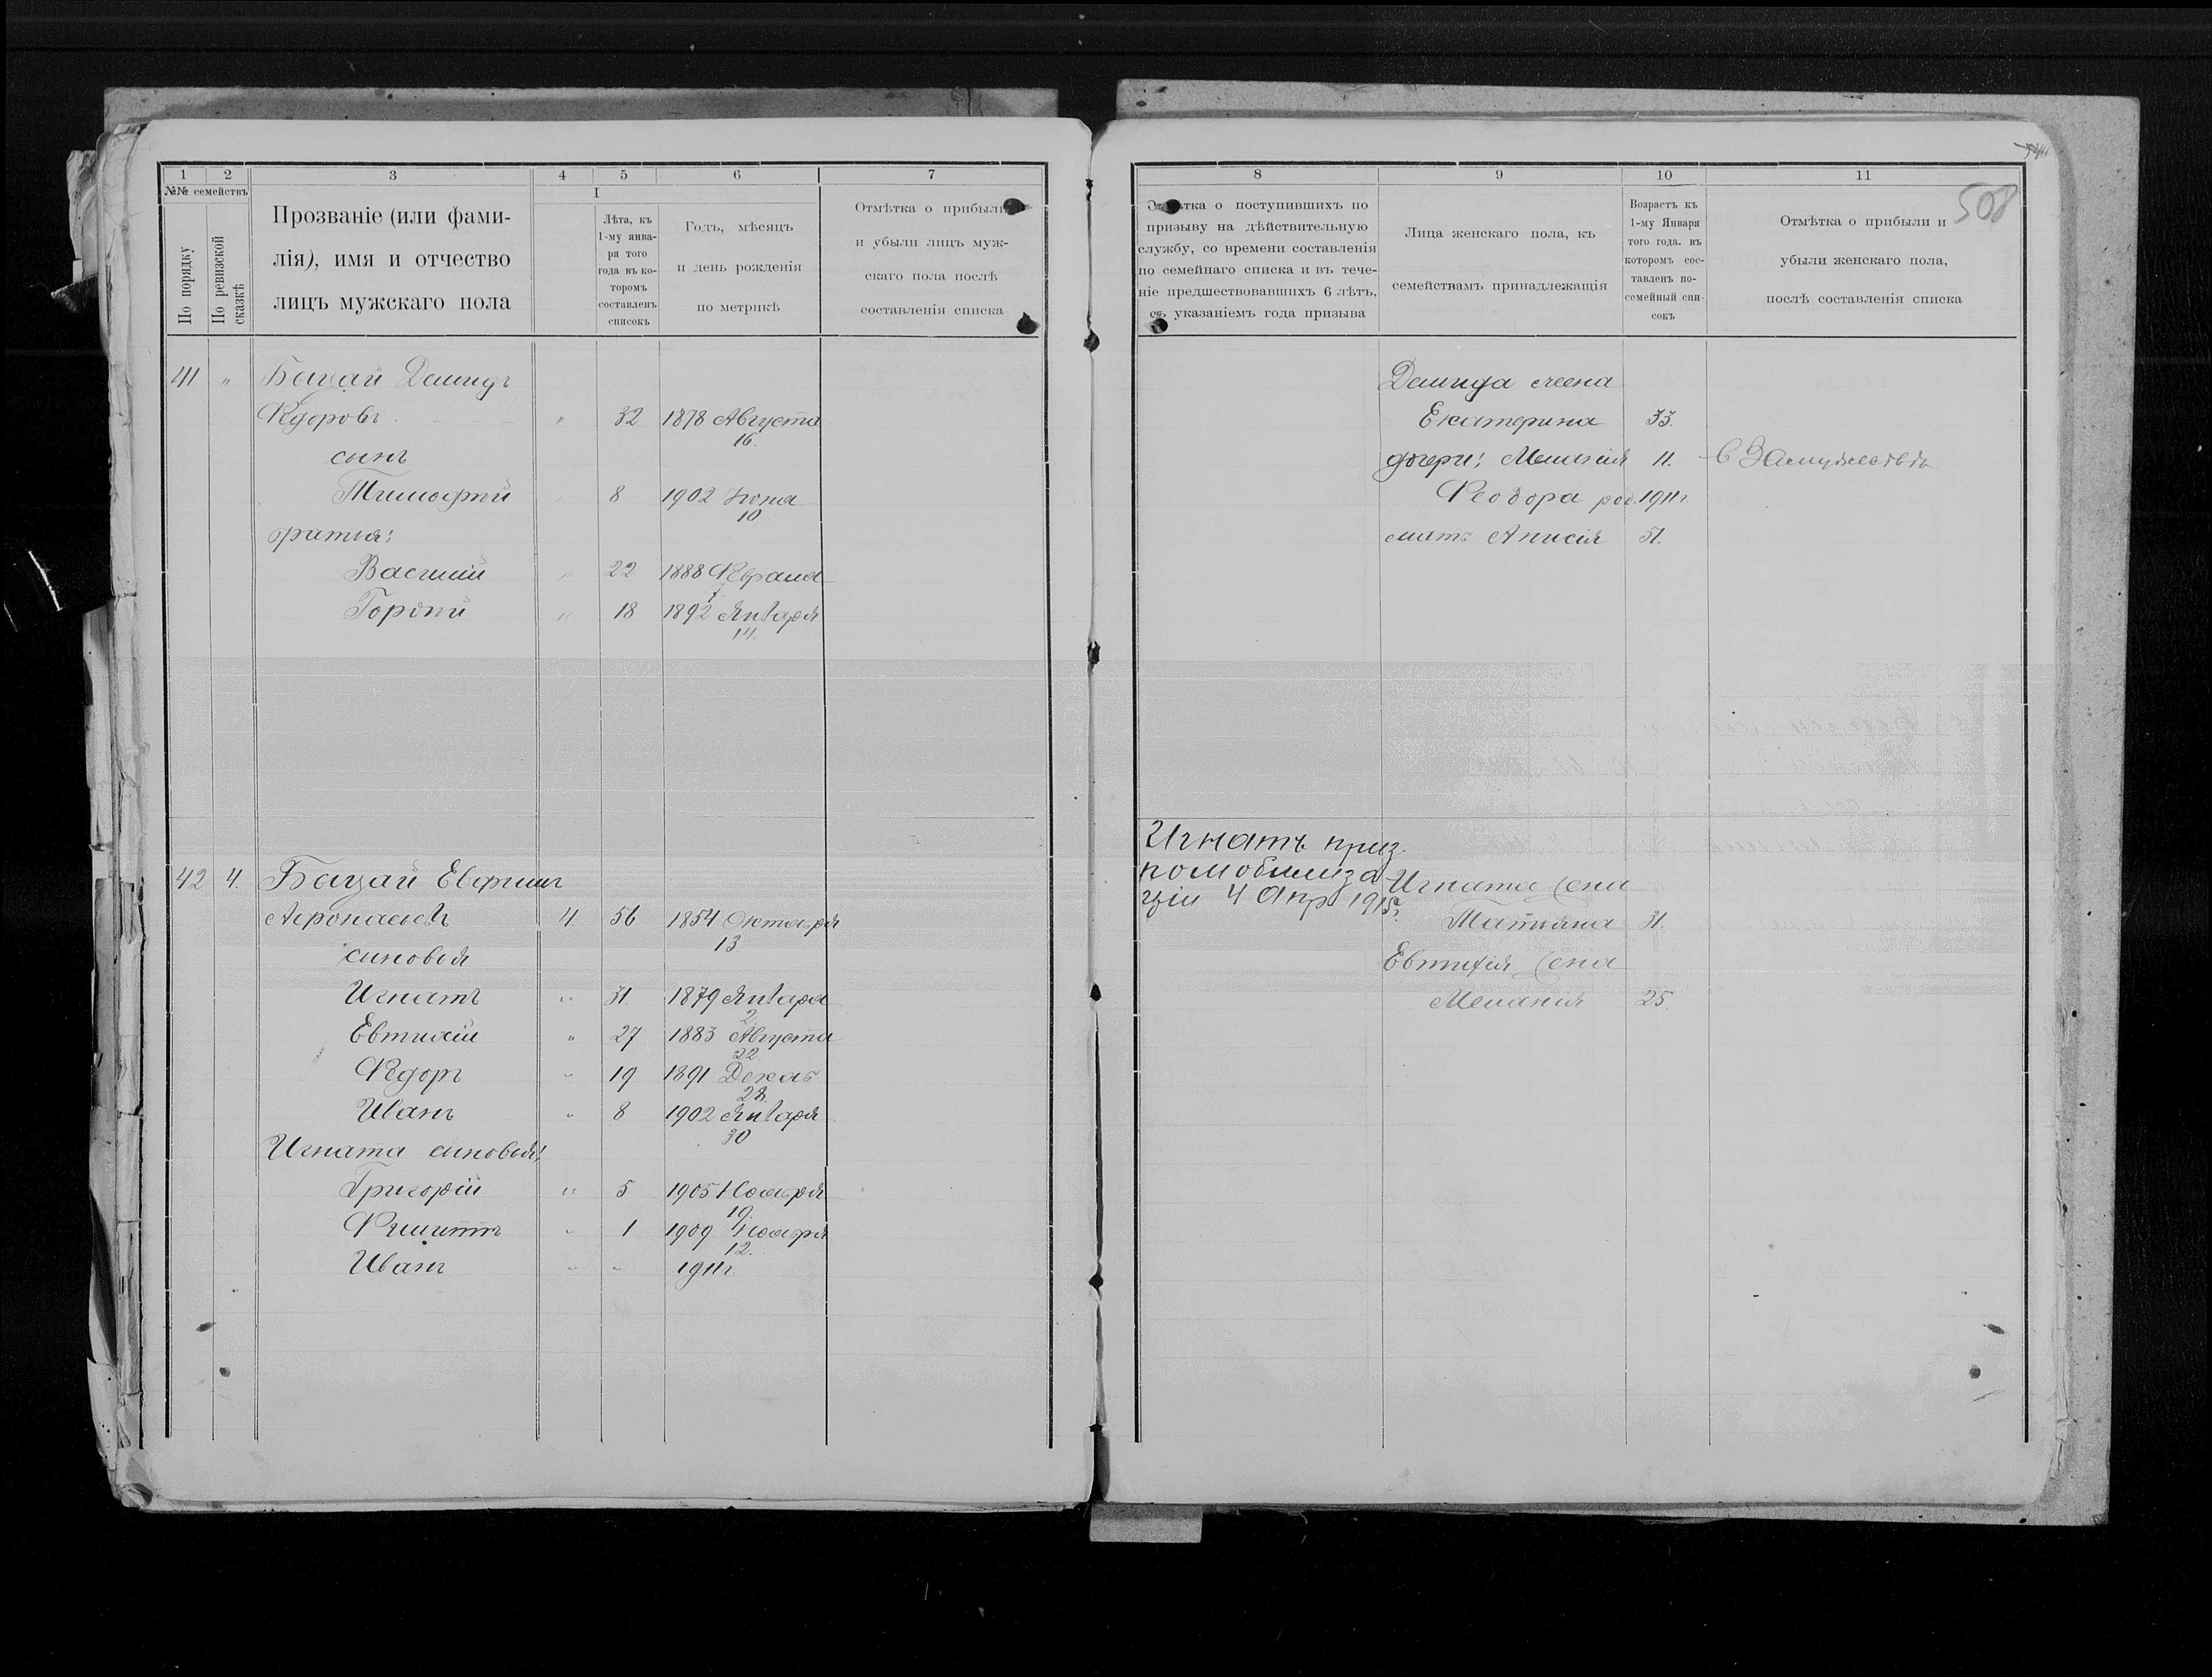 1 2 3 4 5 6 7
№№ семействъ
По порядку
По ревизской сказкѣ
Прозваніе (или фами-
лія), имя и отчество
лицъ мужскаго пола
I
Лѣта, къ
1-му янва-
ря того
года въ ко-
торомъ
составленъ
списокъ
Годъ, мѣсяцъ
и день рожденія
по метрикѣ
Отмѣтка о прибыли
и убыли лицъ муж-
скаго пола послѣ
составленія списка
41 " Бацай Демидъ
Ѳедоровъ " 32 1878 Августа
16.
сынъ
Тимофей " 8 1902 Іюня
10
братья:
Василій " 22 1888 Февраля
7.
Гордѣй " 18 1892 Января
14.
42 4. Бацай Евфимъ
Афонасьевъ 4. 56 1854 Октября
13
синовья
Игнатъ " 31. 1879 Января
2.
Евтихій " 27 1883 Августа
22.
Ѳедоръ " 19 1891 Декаб
28.
Иванъ " 8 1902 Января
30
Игната синовья:
Григорій " 5 1905 Ноября
19.
Филиппъ " 1 1909 Ноября
12.
Иванъ " " 1911г.
508
8 9 10 11
Отмѣтка о поступившихъ по
призыву на дѣйствительную
службу, со времени составленія
по семейнаго списка и въ тече-
ніе предшествовавшихъ 6 лѣтъ,
съ указаніемъ года призыва
Лица женскаго пола, къ
семействамъ принадлежащія
Возрастъ къ
1-му Января
того года. въ
которомъ сос-
тавленъ по-
семейный спи-
сокъ
Отмѣтка о прибыли и
убыли женскаго пола,
послѣ составленія списка
Демида жена
Екатерина 33.
дочери: Меланія 11. в Замужествѣ
Ѳеодора род. 1911г.
мать Анисія 51.
Игнатъ приз.
по мобилиза-
ціи 4 Апр 1915г.
Игната жена
Татіяна 31.
Евтихія жена
Меланія 25.